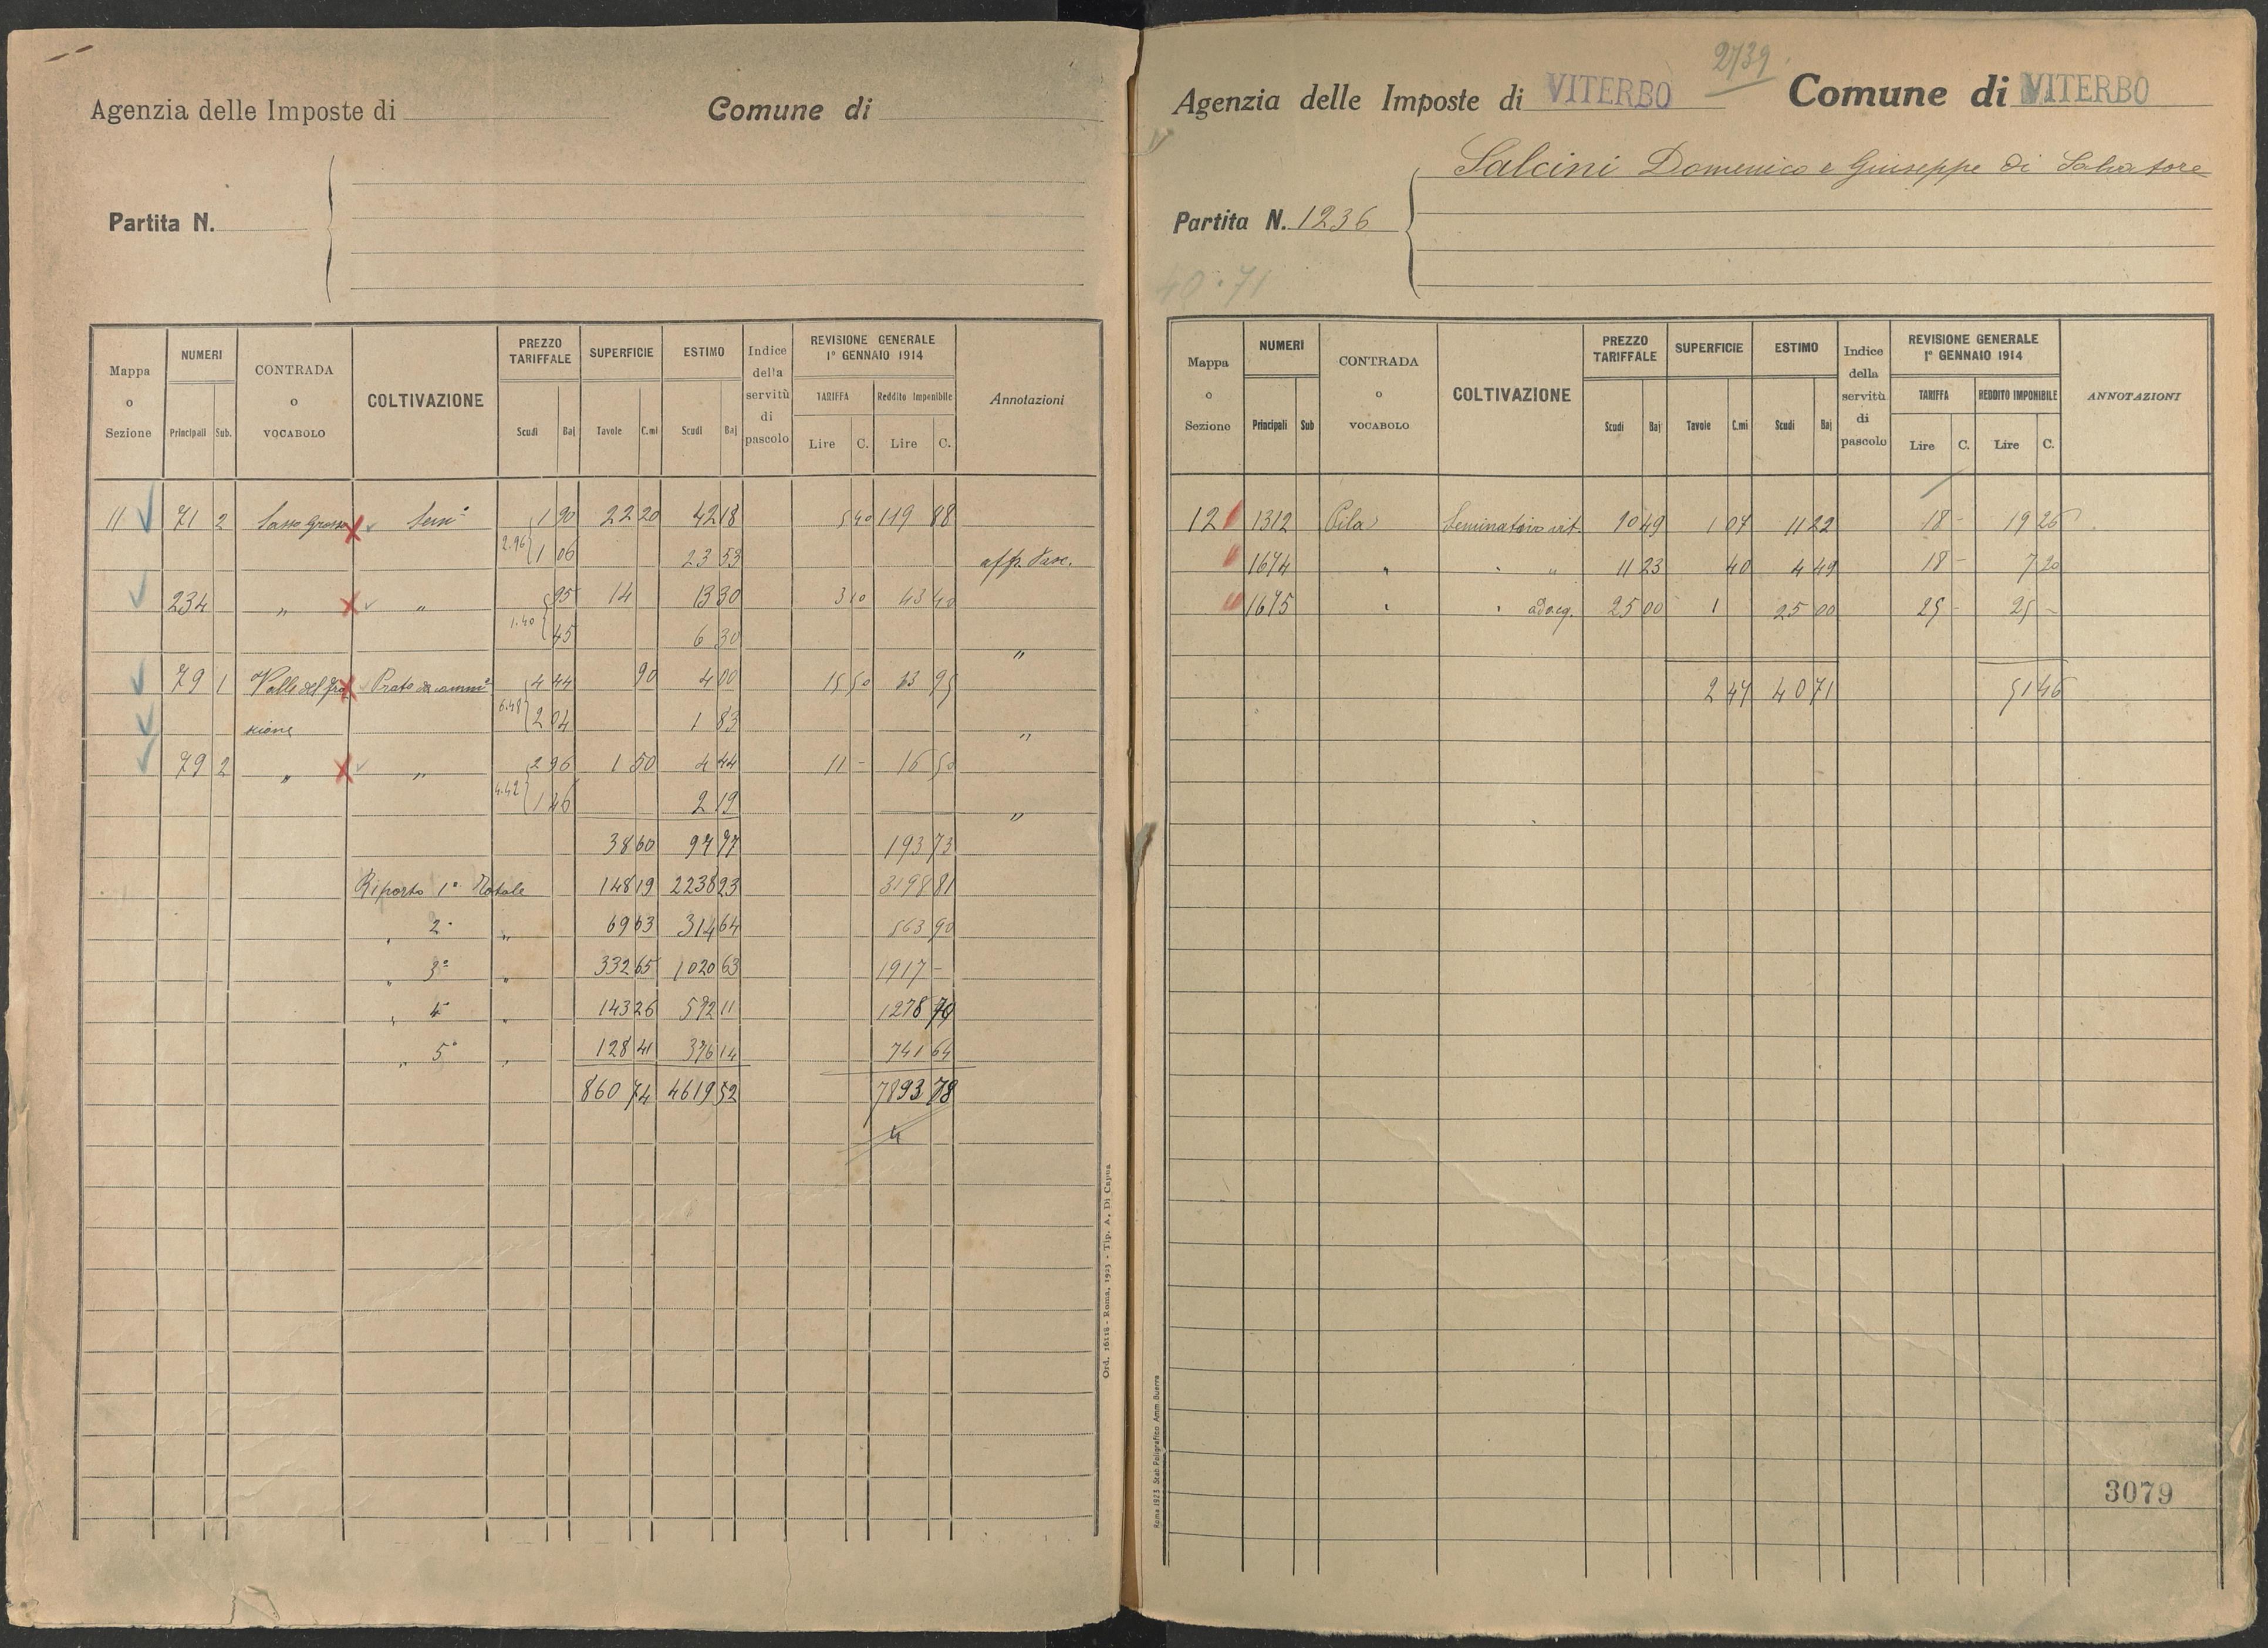 Agenzia delle Imposte di
Comune di
Partita N.
Mappa o Sezione
NUMERI
Principali Sub.
CONTRADA o VOCABOLO
COLTIVAZIONE
PREZZO TARIFFALE
Scudi Baj
SUPERFICIE
Tavole C.mi
ESTIMO
Scudi Baj
Indice della servitù di pascolo
REVISIONE GENERALE 1° GENNAIO 1914
TARIFFA
Lire C.
Reddito Imponibile
Lire C.
Annotazioni
11 71 2 Sasso Grosso Sem° 1 90 22 20 42 18 5 40 119 88
2.96 1 06 23 53 aff. Pasc.
234 " " 95 14 13 30 3 10 43 40
1.40 45 6 30 "
79 1 Valle del Fra Prato 4 44 90 4 00 15 50 13 95
6.48 2 04 1 83 "
zione
79 2 " " 2 96 1 50 4 44 11 - 16 50
4.42 1 46 2 19 "
38 60 97 77 193 73
Riporto 1° Totale 148 19 2238 23 3198 81
" 2° " 69 63 314 64 563 90
" 3° " 332 65 1020 63 1917 -
" 4° " 143 26 572 11 1278 70
" 5° " 128 41 376 14 741 64
860 74 4619 52 7893 78
4
Ord. 16118 - Roma, 1923 - Tip. A. Di Capua
2739
Agenzia delle Imposte di VITERBO Comune di VITERBO
Salcini Domenico e Giuseppe di Salvatore
Partita N. 1236
40.71
Mappa o Sezione
NUMERI
Principali Sub
CONTRADA o VOCABOLO
COLTIVAZIONE
PREZZO TARIFFALE
Scudi Baj
SUPERFICIE
Tavole C.mi
ESTIMO
Scudi Baj
Indice della servitù di pascolo
REVISIONE GENERALE 1° GENNAIO 1914
TARIFFA
Lire C.
REDDITO IMPONIBILE
Lire C.
ANNOTAZIONI
12 1312 Pila Seminatorio vit. 10 49 1 07 11 22 18 - 19 26
1674 " " " 11 23 40 4 49 18 - 7 20
1675 " " adacq. 25 00 1 25 00 25 - 25 -
2 47 40 71 51 46
3079
Roma 1923 Stab. Poligrafico Amm. Guerra